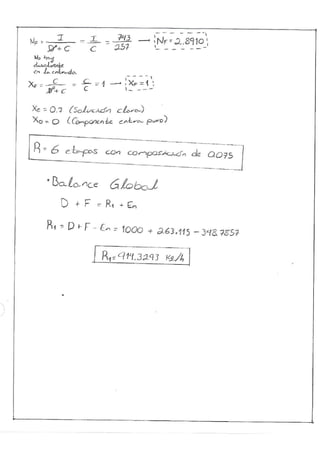 NF = I / D⁰+C = I / C = 743 / 257 → NF = 2.8910
No hay
disolvente
en la entrada.
XF = C / D⁰+C = C / C = 1 → XF = 1
Xe = 0.7 (Solución clara)
X0 = 0 (Componente entra puro)
R = 6 etapas con composición de 0.075
• Balance Global
D + F = R1 + En
R1 = D + F - En = 1000 + 263.115 - 348.7857
R1 = 914.3293 Kg/h